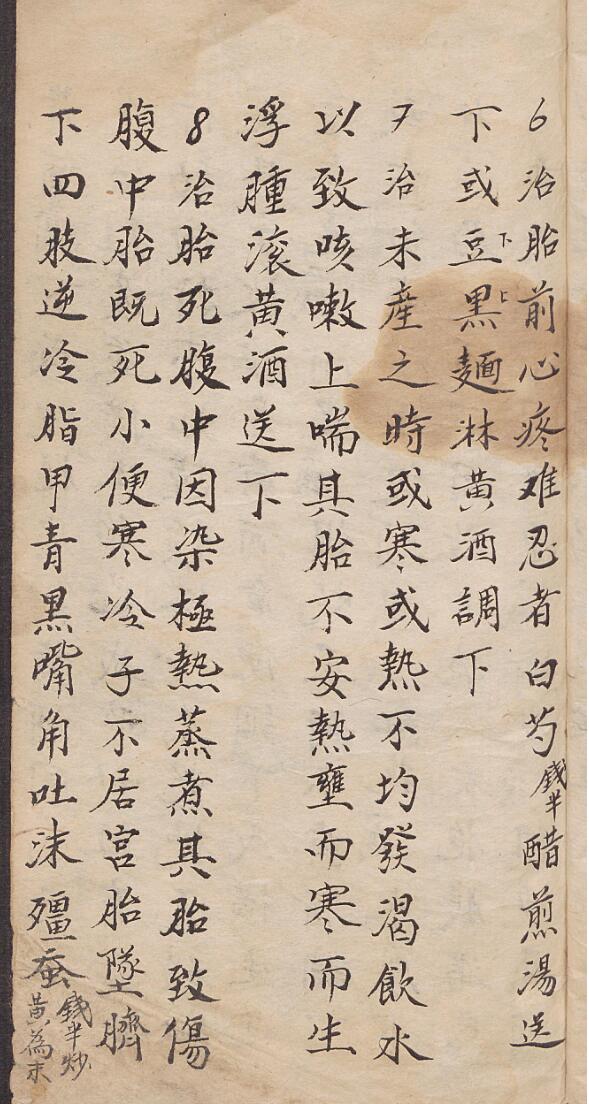 6治胎前心疼难忍者白芍錢半醋煎湯送
下或豆下黑上麵淋黃酒調下
7治未產之時或寒或熱不均發渴飲水
以致咳嗽上喘具胎不安熱壅而寒而生
浮腫滚黃酒送下
8治胎死腹中因染極熱蒸煮其胎致傷
腹中胎既死小便寒冷子不居宮胎墜臍
下四肢逆冷脂甲青黑嘴角吐沫殭蚕錢半炒黃為末